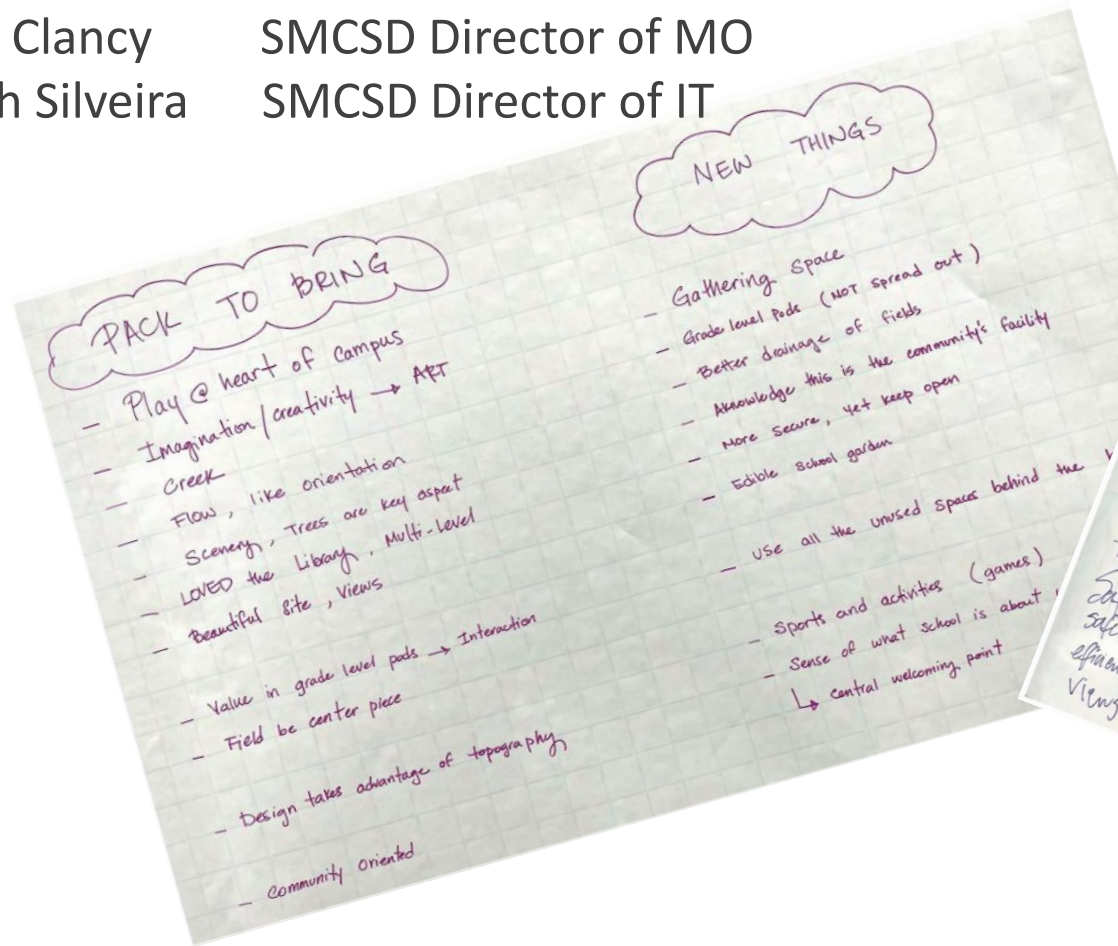 Clancy SMCSD Director of MO
h Silveira SMCSD Director of IT
PACK TO BRING
- Play @ heart of campus
- Imagination / creativity → ART
- Creek
- Flow, like orientation
- Scenery, Trees are key aspect
- LOVED the Library, Multi-Level
- Beautiful Site, Views
- Value in grade level pods → Interaction
- Field be center piece
- Design takes advantage of topography
- Community Oriented
NEW THINGS
- Gathering Space
- Grade level Pods (NOT spread out)
- Better drainage of fields
- Aknowledge this is the community's facility
- More secure, yet keep open
- Edible School garden
- Use all the unused spaces behind the
- Sports and activities (games)
- Sense of what school is about
↳ central welcoming point